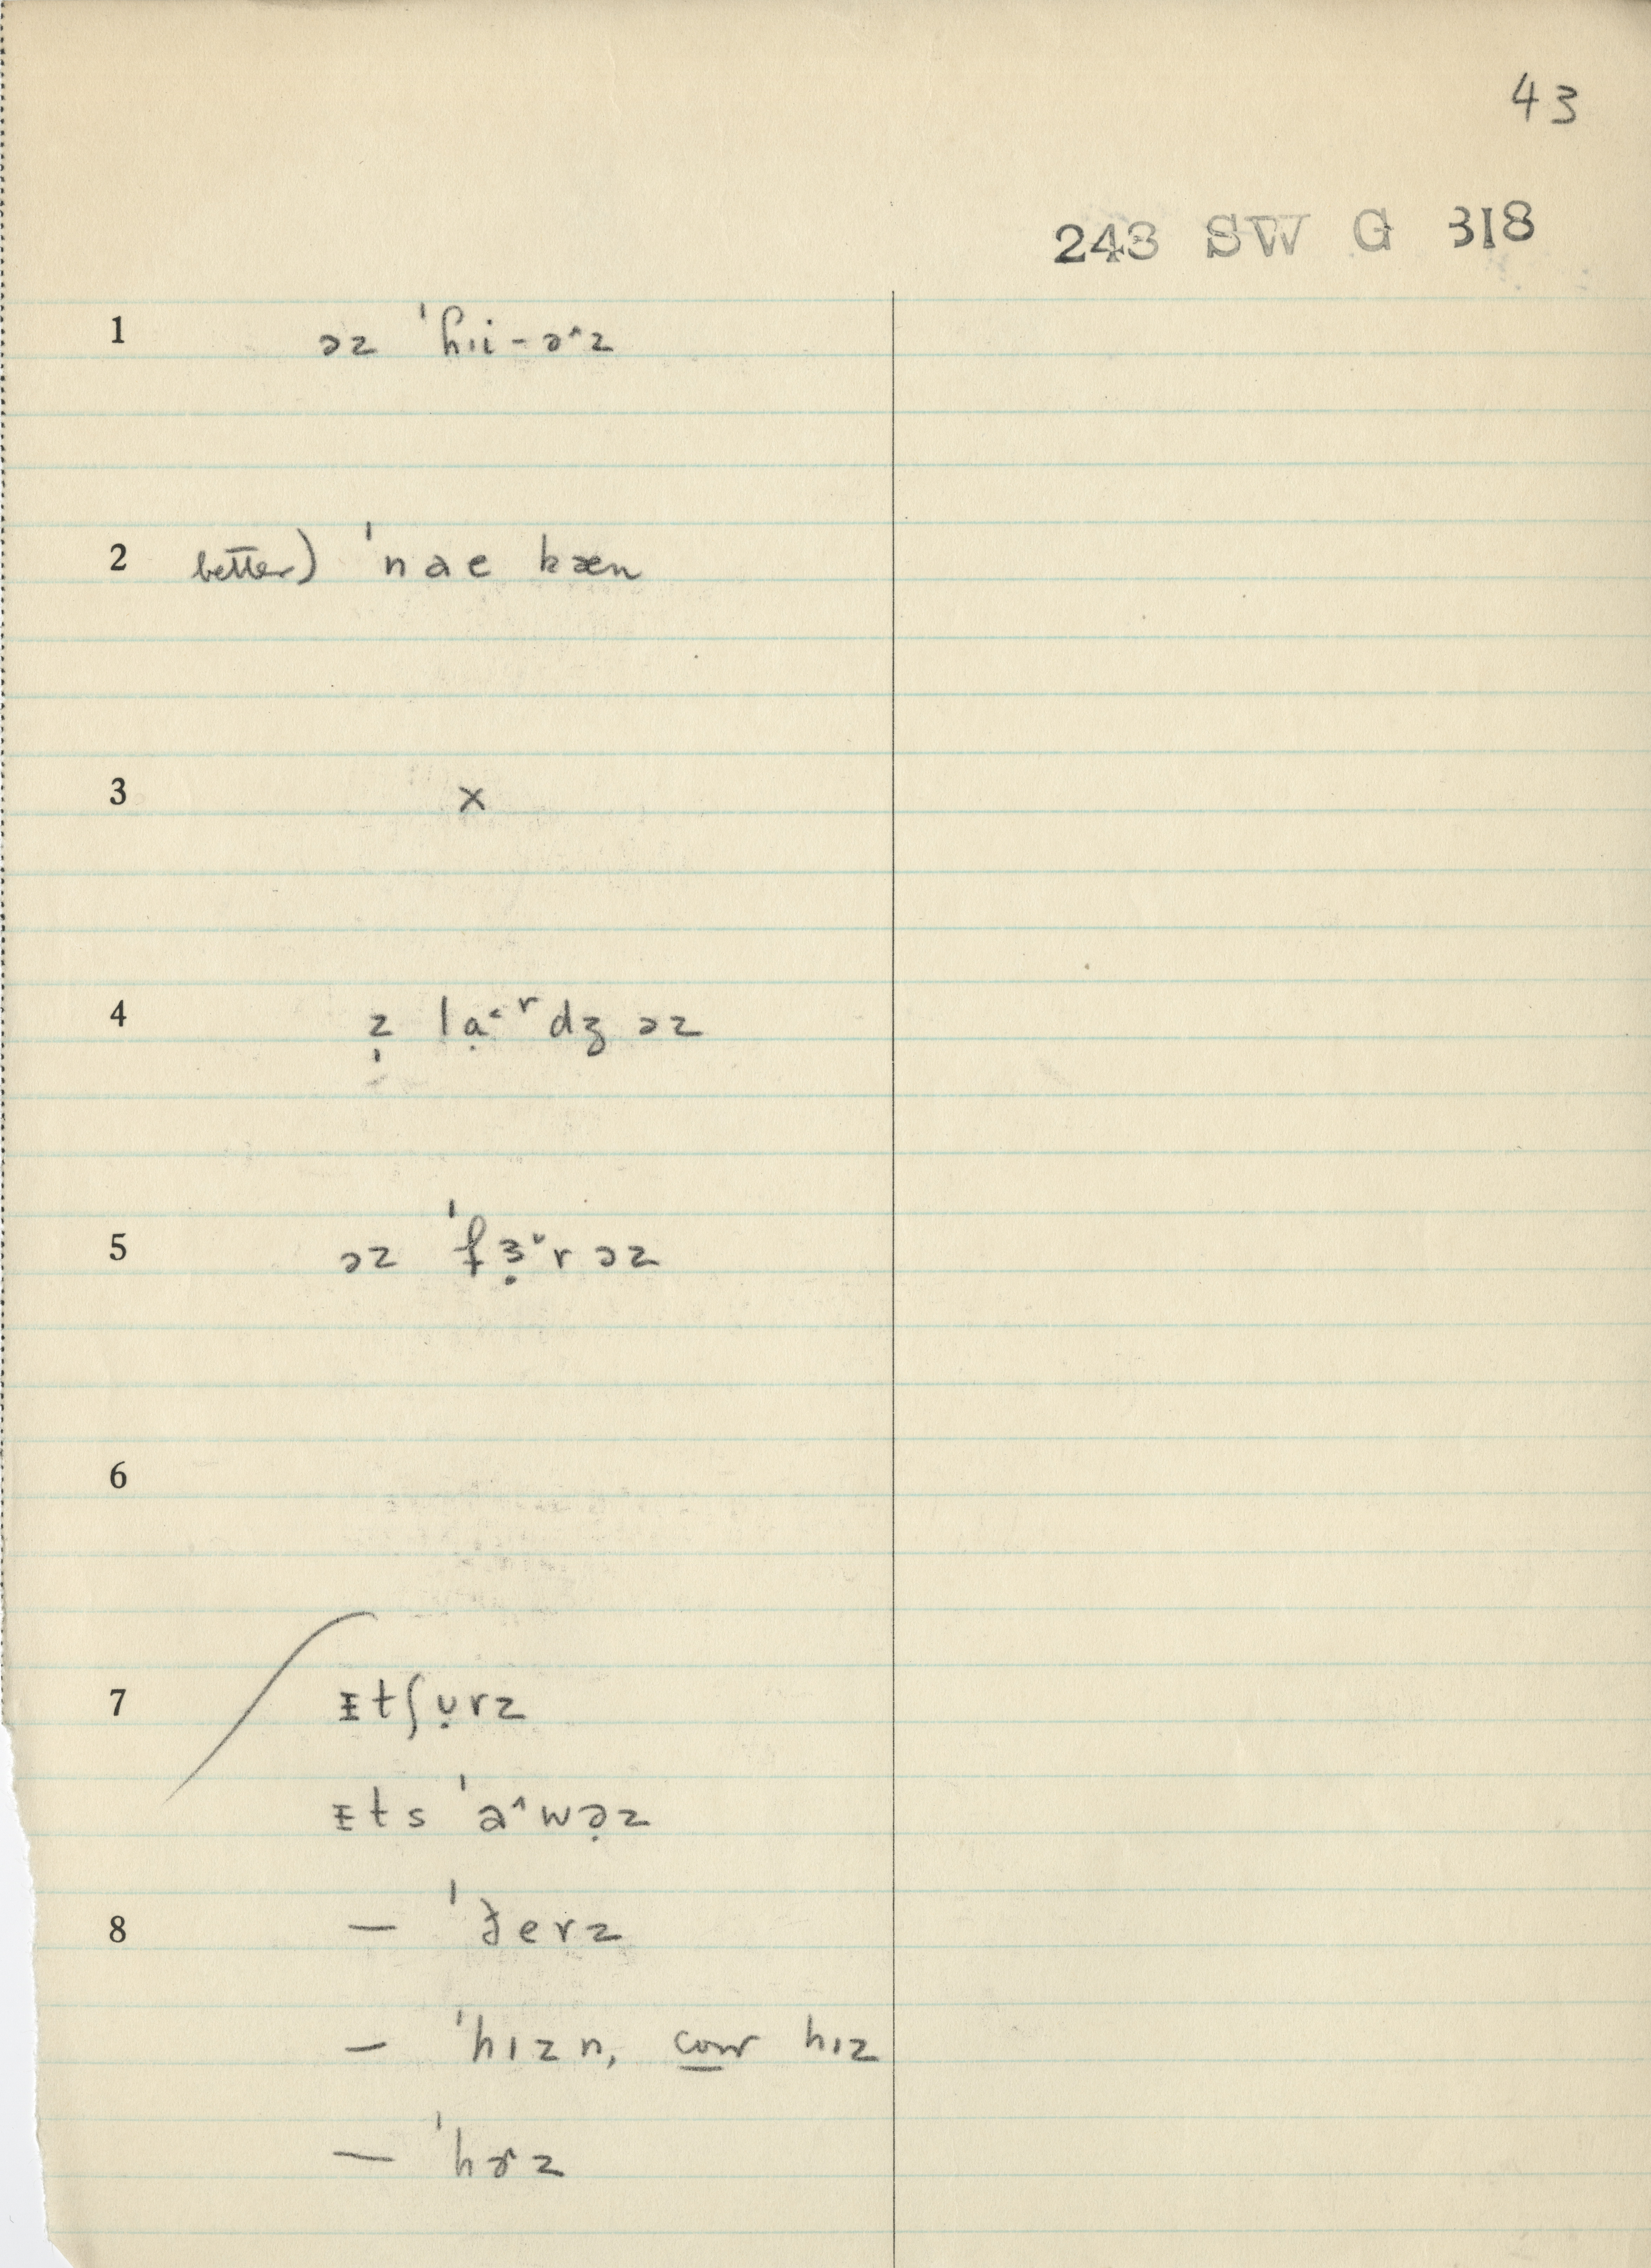 43
243 SW G 318
1 əz ˈhɪi-ə˄z
2 better) ˈnae kæn
3 x
4 z̩ lạ˂ʳdʒ əz
5 əz ˈfɜ̣˅r əz
6
7 ᵻtʃʊ̣rz
ᵻts ˈa˄wə̣z
8 — ˈðerz
— ˈhɪzn, corr hɪz
— ˈhɚz